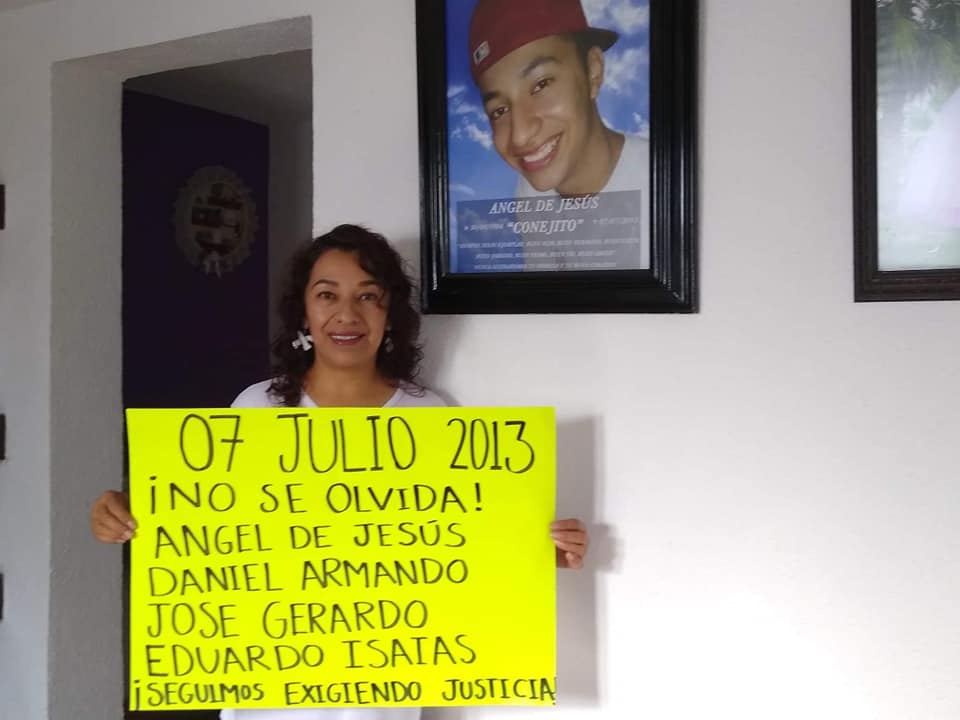 ANGEL DE JESÚS
"CONEJITO"
07 JULIO 2013
¡NO SE OLVIDA!
ANGEL DE JESÚS
DANIEL ARMANDO
JOSE GERARDO
EDUARDO ISAIAS
¡SEGUIMOS EXIGIENDO JUSTICIA!